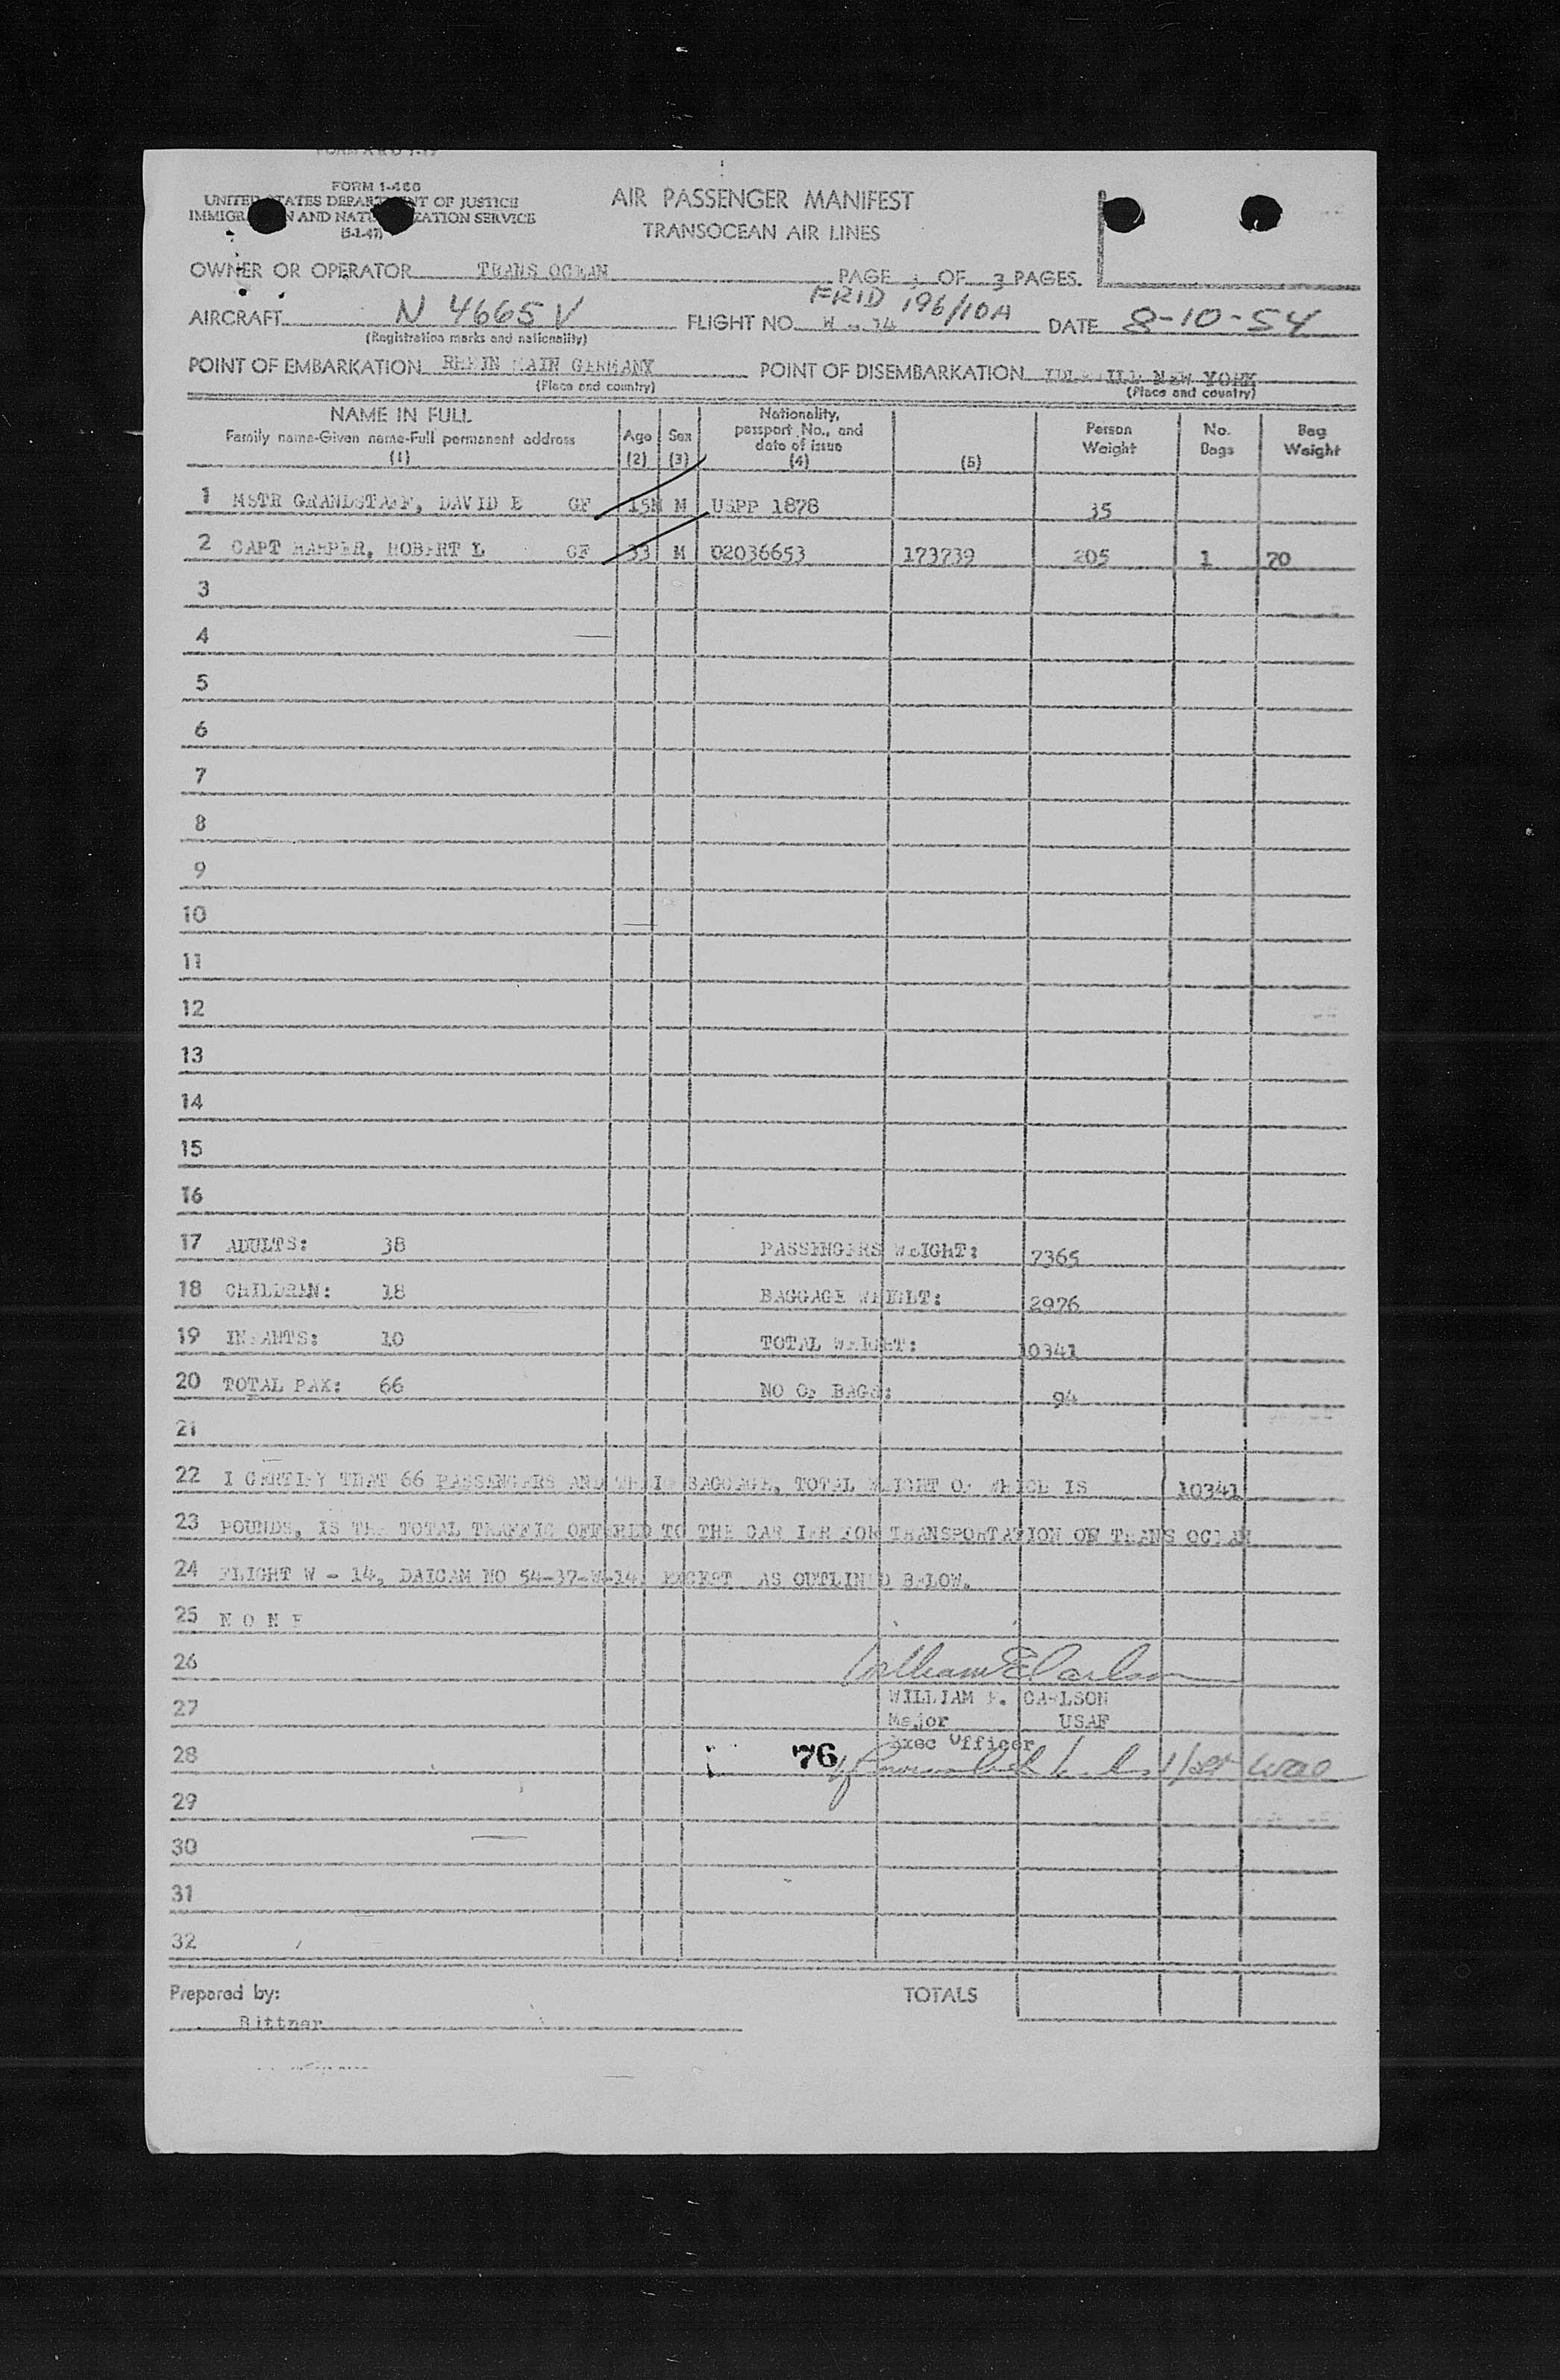 FORM I-466
UNITED STATES DEPARTMENT OF JUSTICE
IMMIGRATION AND NATURALIZATION SERVICE
(5-1-47)
AIR PASSENGER MANIFEST
TRANSOCEAN AIR LINES
OWNER OR OPERATOR TRANS OCEAN PAGE OF 3 PAGES.
FRID 196/10A
AIRCRAFT N 4665V FLIGHT NO. W - 14 DATE 8-10-54
(Registration marks and nationality)
POINT OF EMBARKATION RHEIN MAIN GERMANY POINT OF DISEMBARKATION IDLEWILD NEW YORK
(Place and country) (Place and country)
NAME IN FULL Nationality, passport No., and date of issue Person Weight No. Bags Bag Weight
Family name-Given name-Full permanent address Age Sex
(1) (2) (3) (4) (5)
1 MSTR GRANDSTAFF, DAVID E GF 15M M USPP 1878 35
2 CAPT HARPER, ROBERT L GF 33 M 02036653 173739 205 1 70
3
4
5
6
7
8
9
10
11
12
13
14
15
16
17 ADULTS: 38 PASSENGERS WEIGHT: 7365
18 CHILDREN: 18 BAGGAGE WEIGLT: 2976
19 INFANTS: 10 TOTAL WEIGHT: 10341
20 TOTAL PAX: 66 NO OF BAGS: 94
21
22 I CERTIFY THAT 66 PASSENGERS AND THEIR BAGGAGE, TOTAL WEIGHT OF WHICH IS 10341
23 POUNDS, IS THE TOTAL TRAFFIC OFFERED TO THE CARRIER FOR TRANSPORTATION ON TRANS OCEAN
24 FLIGHT W - 14, DAICAM NO 54-37-W-14, EXCEPT AS OUTLINED BELOW.
25 N O N E
26 William E Carlson
27 WILLIAM E. CARLSON
Major USAF
Exec Officer
28 76
29
30
31
32
Prepared by: TOTALS
Bittner